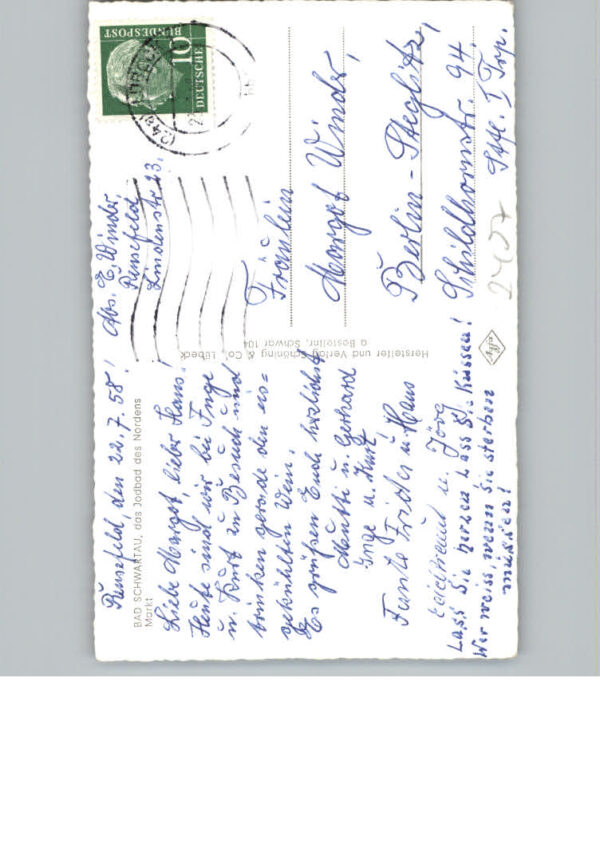 Rensefeld, den 22.7.58!
BAD SCHWARTAU, das Jodbad des Nordens
Markt
Liebe Margot, lieber Hans!
Heute sind wir bei Inge
u. Kurt zu Besuch und
trinken gerade den eis-
gekühlten Wein.
Es grüßen Euch herzlichst
Mutti u. Gerhard
Inge u. Kurt
Tante Frieda u. Hans
u. Jörg
Lass Sie herzen Lass Sie Küssen!
Wer weiss, wann Sie sterben
müssen!
Hersteller und Verlag Schöning & Co., Lübeck
Bestellnr. Schwar 104
Abs. E. Winder,
Rensefeld
Lindenstr. 23.
DEUTSCHE
BUNDESPOST
10
Fräulein
Margot Winder,
Berlin-Steglitz,
Schildhornstr. 94.
Stfl. I Trp.